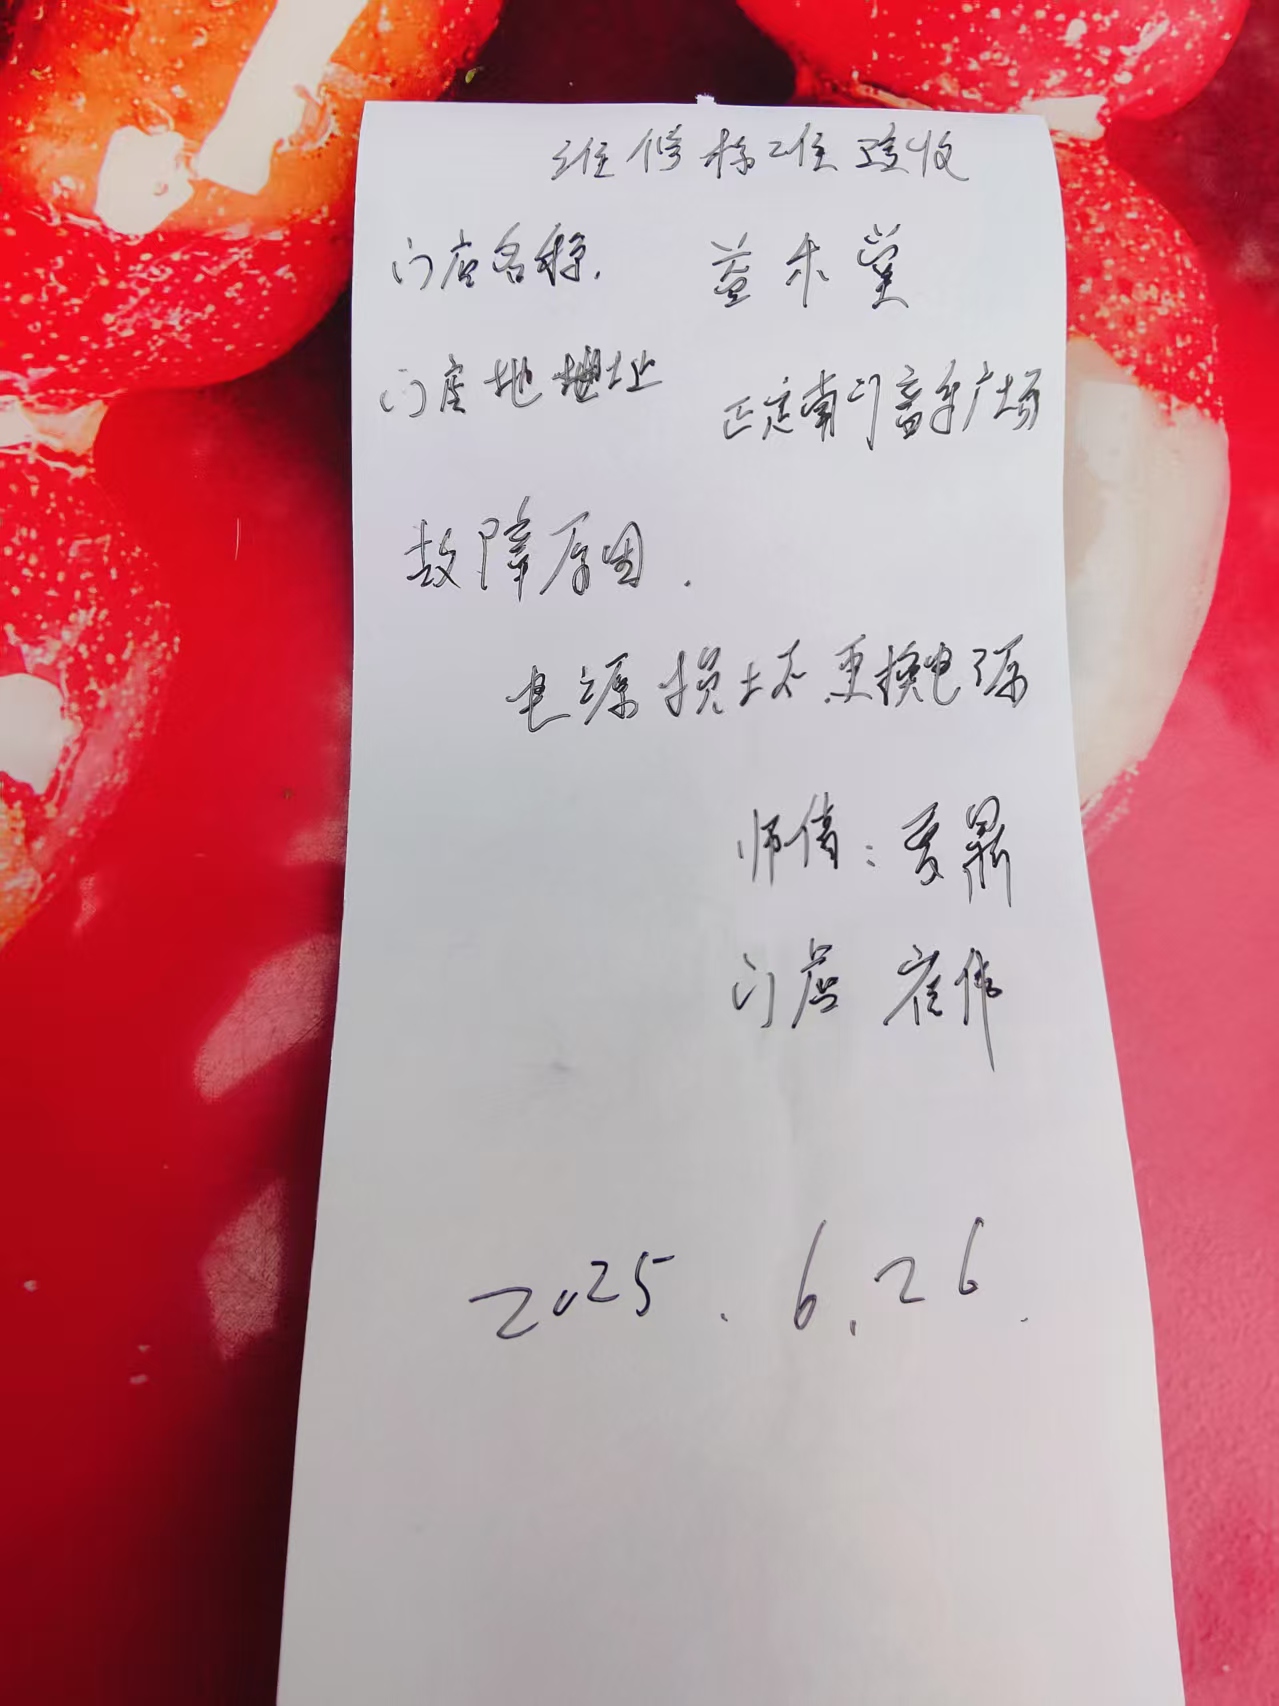 维修标准验收
门店名称. 益禾堂
门店地地址 正定南门音乐广场
故障原因.
电源损坏更换电源
师傅: 夏鼎
门店 崔伟
2025.6.26.